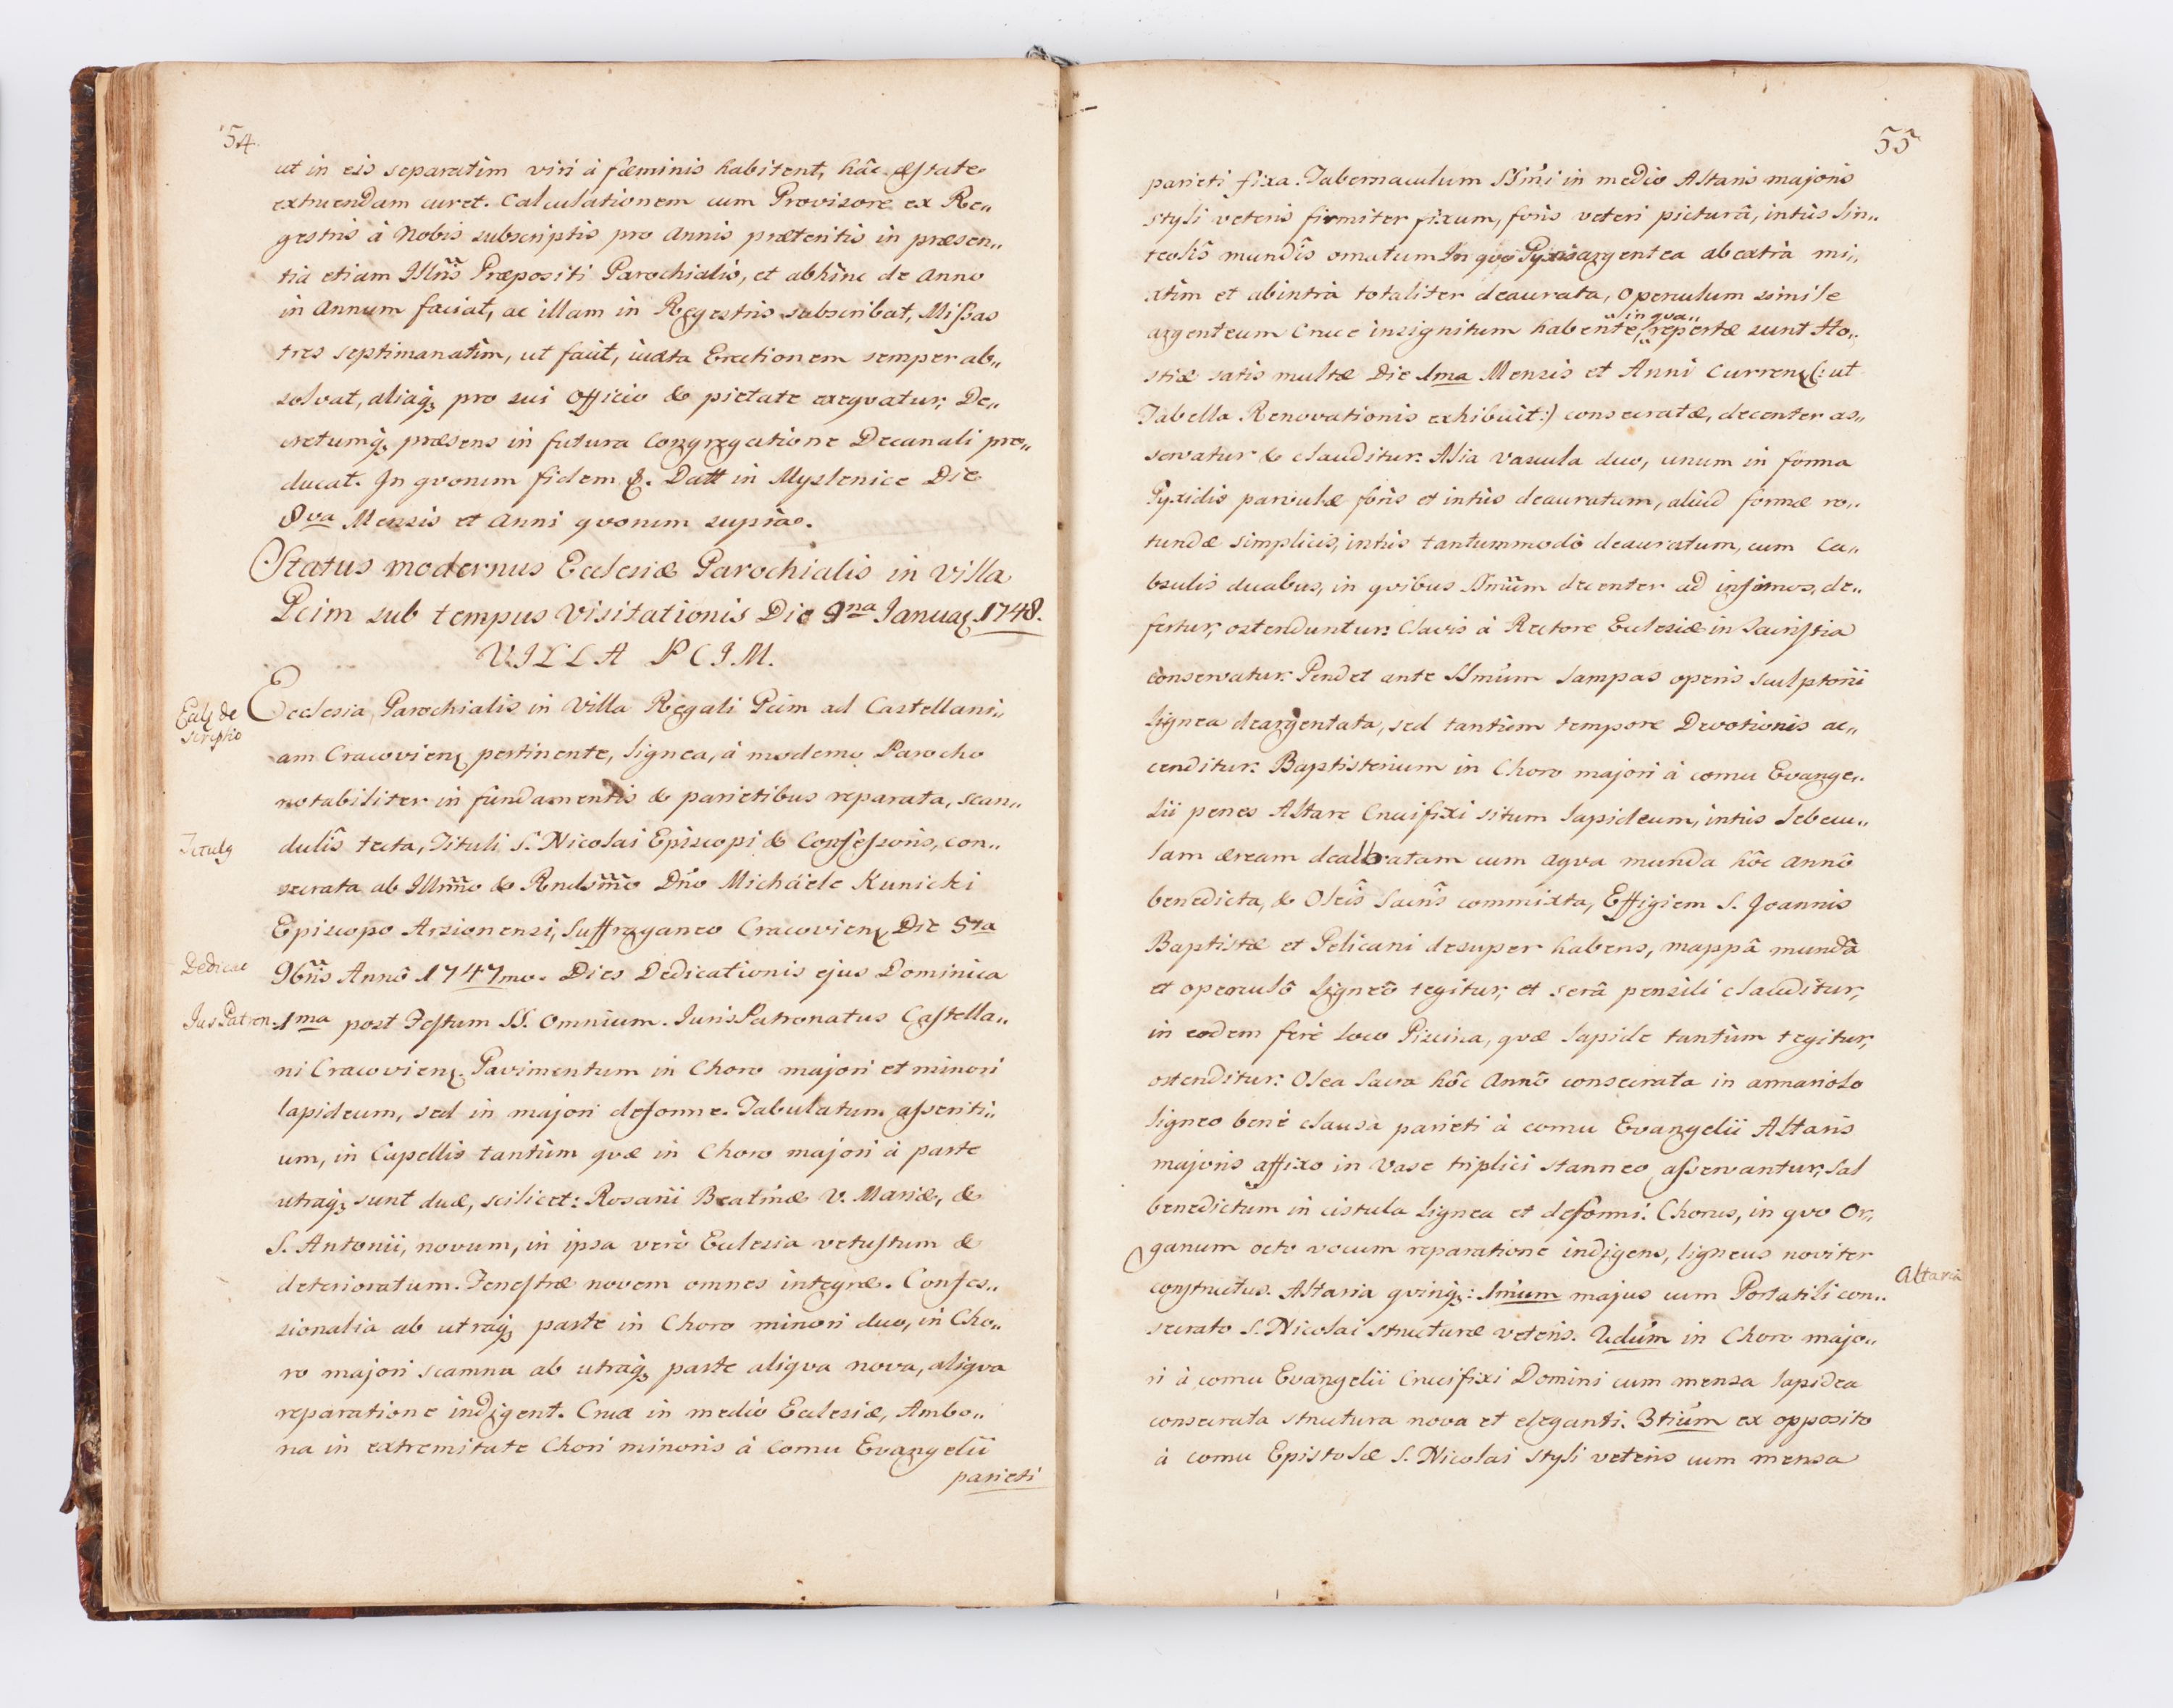 54.
ut in eis separatim viri à fæminis habitent, hâc æstate
extruendam curet. Calculationem cum Provisore ex Re„
gestris à Nobis subscriptis pro Annis præteritis in præsen„
tia etiam Illñis Præpositi Parochialis, et abhinc de Anno
in Annum faciat, ac illam in Regestris subscribat, Missas
tres septimanatim, ut facit, iuxta Erectionem semper ab„
solvat, aliaq; pro sui Officio & pietate exeqvatur, De„
cretumq; præsens in futura Congregatione Decanali pro„
ducat. In qvorum fidem &. Datt in Myslenice Die
8va Mensis et Anni qvorum supra.
Status modernus Ecclesiæ Parochialis in Villa
Pcim sub tempus Visitationis Die 9na Januar 1748.
VILLA PCIM.
Eccl de
scriptio
Ecclesia Parochialis in Villa Regali Pcim ad Castellani„
am Cracovien pertinente, lignea, à moderno Parocho
notabiliter in fundamentis & parietibus reparata, scan„
Tituly
dulis tecta, Tituli S. Nicolai Episcopi & Confessoris, con„
secrata ab Illm̃o & Rndsm̃o Dño Michäele Kunicki
Episcopo Arsionensi, Suffraganeo Cracovien Die 5ta
Dedicac
9bris Annô 1747mo. Dies Dedicationis ejus Dominica
Jus Patron:
1ma post Festum SS. Omnium. Juris Patronatus Castella„
ni Cracovien. Pavimentum in Choro majori et minori
lapideum, sed in majori deforme. Tabulatum asseriti„
um, in Capellis tantùm qvæ in Choro majori à parte
utraq; sunt duæ, scilicet: Rosarii Beatmæ V. Mariæ, &
S. Antonii, novum, in ipsa verò Eclesia vetustum &
deterioratum. Fenestræ novem omnes integræ. Confes„
sionalia ab utraq; parte in Choro minori duo, in Cho„
ro majori scamna ab utraq; parte aliqva nova, aliqva
reparatione indigent. Crux in medio Eclesiæ, Ambo„
na in extremitate Chori minoris à Cornu Evangelii
parieti
55
parieti fixa. Tabernaculum SSm̃i in medio Altaris majoris
styli veteris firmiter fixum, foris veteri picturâ, intùs lin„
teolis mundis ornatum In qvo Pyxis argentea ab extra mi„
xtim et ab intra totaliter deaurata, operculum simile
in qva„
argenteum Cruce insignitum habente, repertæ sunt Ho„
stiæ satis multæ Die 1ma Mensis et Anni Curren (: ut
Tabella Renovationis exhibuit:) consecratæ, decenter as„
servatur & clauditur. Alia vascula duo, unum in forma
Pyxidis parvulæ foris et intùs deauratum, aliud formæ ro„
tundæ simplicis, intùs tantummodò deauratum, cum Ca„
bsulis duabus, in qvibus SSmũm decenter ad infirmos, de„
fertur, ostenduntur. Clavis à Rectore Eclesiæ in Sacristia
conservatur. Pendet ante SSmũm lampas operis sculptorii
lignea deargentata, sed tantùm tempore Devotionis ac„
cenditur. Baptisterium in Choro majori à cornu Evange„
lii penes Altare Crucifixi situm lapideum, intùs lebecu„
lam æream dealbatam cum aqva munda hôc annô
benedicta, & Oleis Sacris commixta, Effigiem S. Joannis
Baptistæ et Pelicani desuper habens, mappâ mundâ
et operculô ligneô tegitur, et serâ pensili clauditur,
in eodem ferè loco Piscina, qvæ lapide tantùm tegitur,
ostenditur. Olea Sacra hôc Annô consecrata in armariolo
ligneo benè clausa parieti à cornu Evangelii Altaris
majoris affixo in vase triplici stanneo asservantur, Sal
benedictum in cistula lignea et deformi. Chorus, in qvo Or„
ganum octo vocum reparatione indigens, ligneus noviter
Altaria
constructus. Altaria qvinq;: 1mum majus cum Portatili con„
secrato S. Nicolai structuræ veteris. 2dum in Choro majo„
ri à cornu Evangelii Crucifixi Domini cum mensa lapidea
consecrata structura nova et eleganti. 3tium ex opposito
à cornu Epistolæ S. Nicolai styli veteris cum mensa